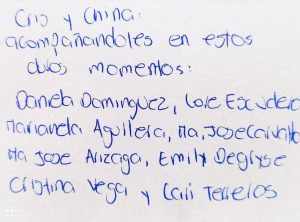 Cris y China:
acompañandoles en estos
duros momentos:
Daniela Dominguez, Lore Escudero
Marianela Aguilera, Ma. Jose Carvallo
Ma Jose Arizaga, Emily Degryse
Cristina Vega y Cari Terreros